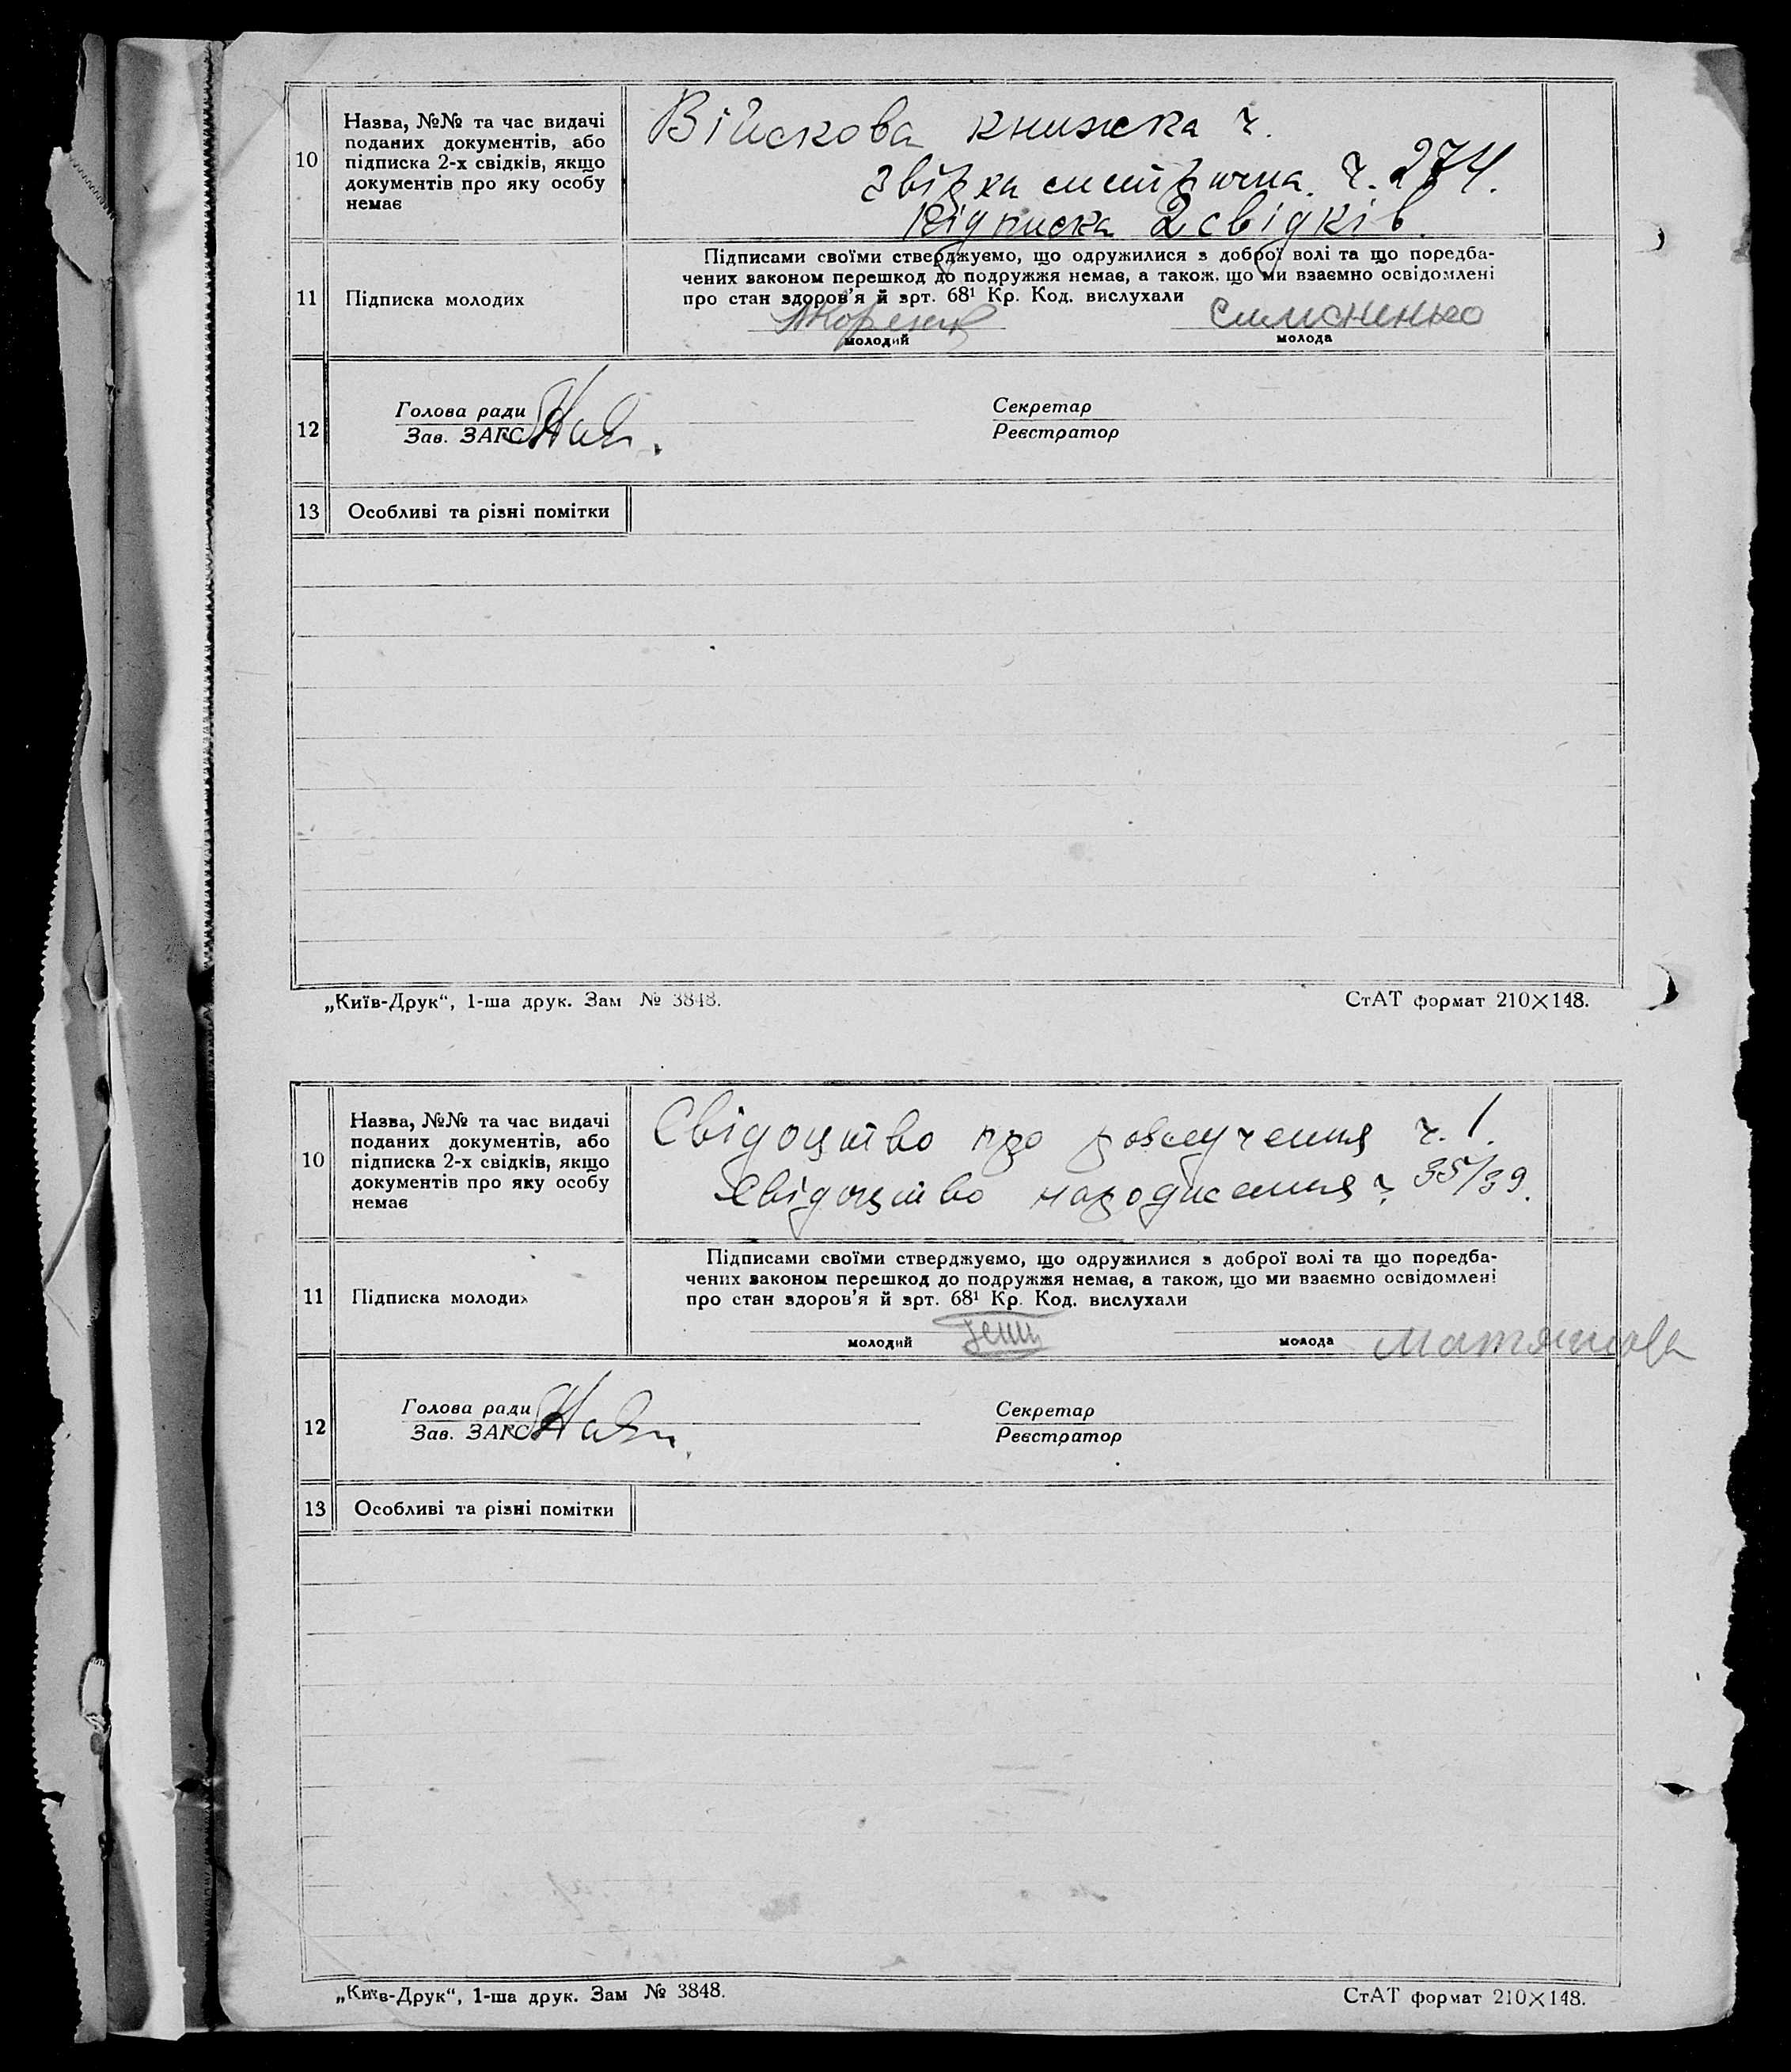 10
Назва, №№ та час видачі
поданих документів, або
підписка 2-х свідків, якщо
документів про яку особу
немає
Військова книжка ч.
ч. 274.
Підписка 2 свідків.
11
Підписка молодих
Підписами своїми стверджуємо, що одружилися з доброї волі та що поредба-
чених законом перешкод до подружжя немає, а також, що ми взаємно освідомлені
про стан здоров'я й зрт. 68¹ Кр. Код. вислухали
Симоненко
молодий
молода
12
Голова ради
Зав. ЗАГС
Секретар
Реєстратор
13
Особливі та різні помітки
„Київ-Друк“, 1-ша друк. Зам № 3848.
СтАТ формат 210×148.
10
Назва, №№ та час видачі
поданих документів, або
підписка 2-х свідків, якщо
документів про яку особу
немає
Свідоцтво про розлучення ч. 1.
Свідоцтво народження ч. 35/39.
11
Підписка молодих
Підписами своїми стверджуємо, що одружилися з доброї волі та що поредба-
чених законом перешкод до подружжя немає, а також, що ми взаємно освідомлені
про стан здоров'я й зрт. 68¹ Кр. Код. вислухали
молодий
молода
12
Голова ради
Зав. ЗАГС
Секретар
Реєстратор
13
Особливі та різні помітки
„Київ-Друк“, 1-ша друк. Зам № 3848.
СтАТ формат 210×148.